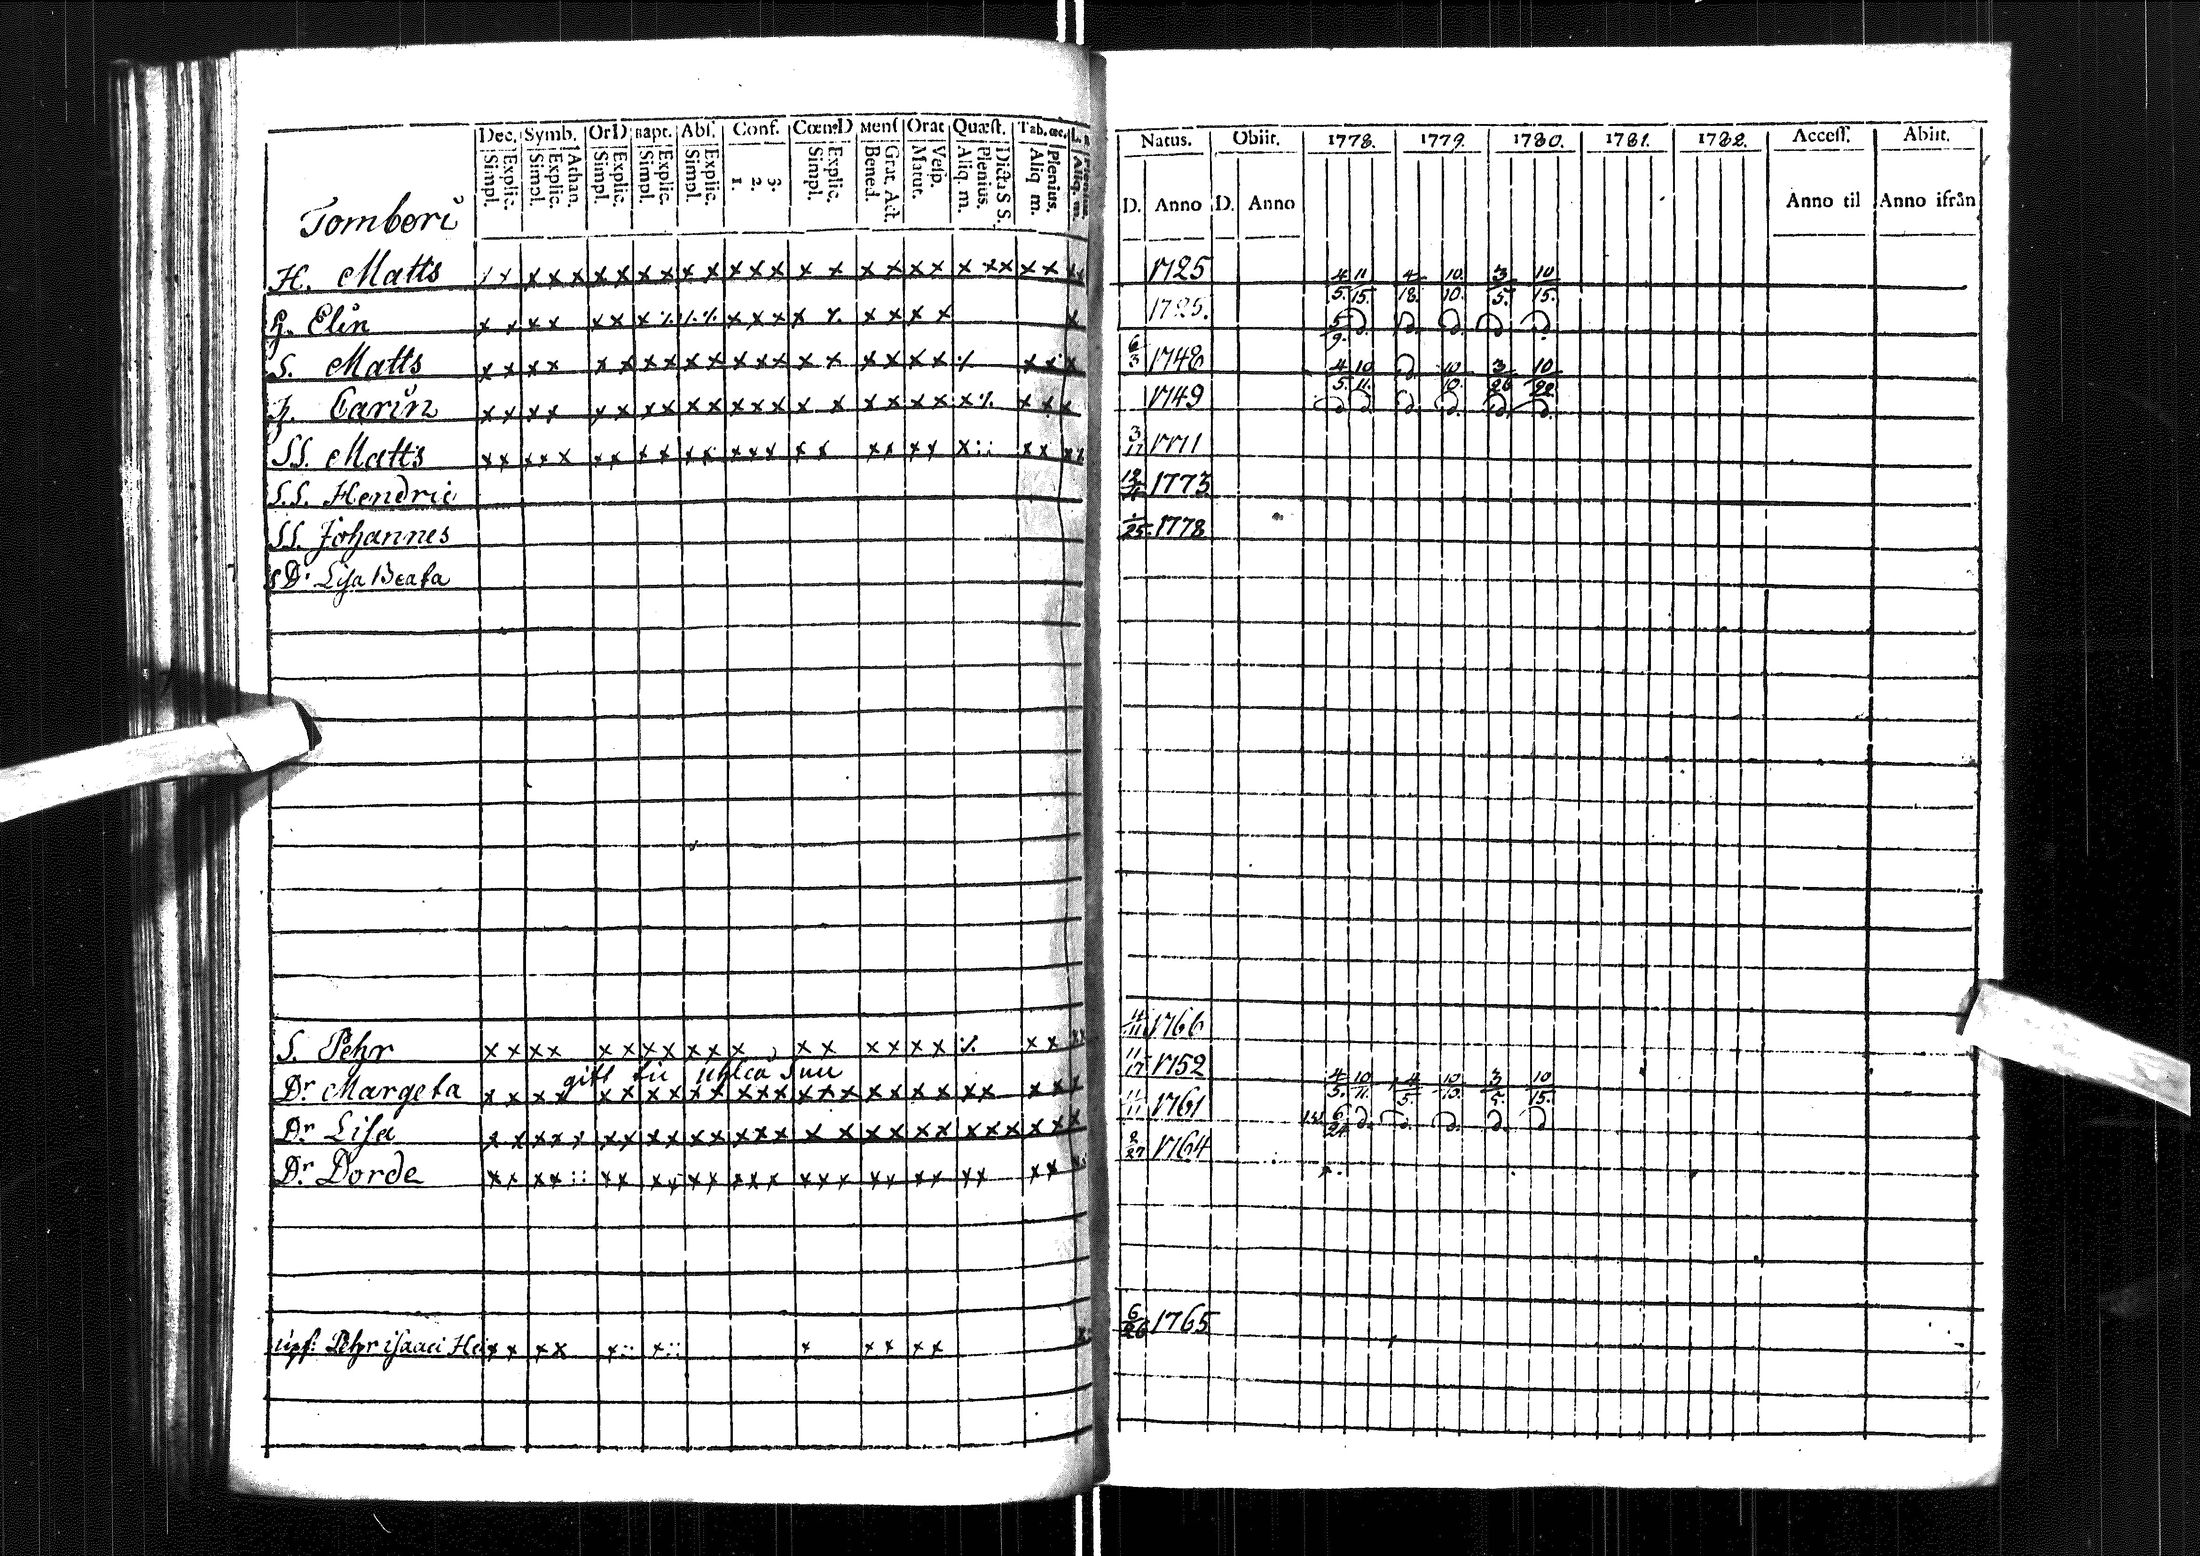 Dec. Symb. OrD Bapt. Abs. Conf. CœnæD Mens Orat Quæst. Tab. œc.
Simpl. Explic. Simpl. Explic. Athan. Simpl. Explic. Simpl. Explic. Simpl. Explic. 1. 2. 3. Simpl. Explic. Bened. Grat. Act. Matut. Vesp. Aliq. m. Plenius. Dicta S S. Aliq m. Plenius. Aliq. m.
Tomberi
H. Matts x x x x x x x x x x x x x x x x x x x x x x x x x
h. Elin x x x x x x x ٪ ٪ ٪ x x x x ٪ x x x x x
S. Matts x x x x x x x x x x x x x x x x x x x ٪ x x x
h. Carin x x x x x x x x x x x x x x x x x x x x ٪ x x x
SS. Matts x x x x x x x x x x x x x x x x x x x x x :: x x x x
S.S. Hendric
SS. Johannes
sD. Lisa Beata
S. Pehr x x x x x x x x x x x x x x x x x ٪ x x
gift
Dr Margeta x x x x x x x x x x x x x x x x x x x x x x x x x
Dr Lisa x x x x x x x x x x x x x x x x x x x x x x x x x x
Dr Dorde x x x x :: x x x x x x x x x x x x x x x x x x x x x
Pehr isaaci x x x x x :: x :: x x x x x
Natus. Obiit. 1778. 1779. 1780. 1781. 1782. Access. Abiit.
D. Anno D. Anno Anno til Anno ifrån
1725 4/5. 11/15. 4/18. 10./10. 3/5. 10/15.
1725. 5/9. d. d. d. d. d.
6/3 1748 4/5. 10/11. d. 10/10. 3/26 10/22
1749 d. d. d. d. d. d.
3/17 1771
12/4 1773
/25. 1778
11/11 1766
11/17 1752 4/5. 10/11. 4/5. 10/13. 3/5. 10/15.
11/11 1761 6/24 d. d. d. d. d
8/27 1764
6/26 1765